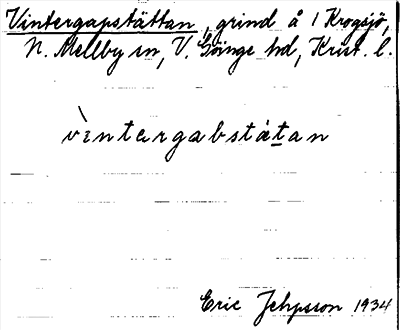 Vintergapstättan, grind å 1 Krogsjö,
N. Mellby sn, V. Göinge hd, Krist. l.
vìntərgabstätan
Eric Jehpsson 1934